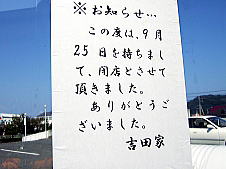 ※お知らせ…
この度は、9月
25日を持ちまし
て、閉店とさせて
頂きました。
ありがとうご
ざいました。
吉田家